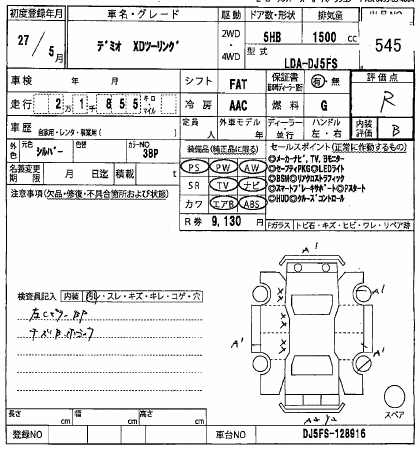 初度登録年月
車名・グレード
駆動
ドア数・形状
排気量
27/5月
デミオ XDツーリング
2WD・4WD
5HB
1500 cc
545
型式
LDA-DJ5FS
車検 年 月
シフト
FAT
保証書
有・無
評価点
R
走行
2万1千855
キロ・マイル
冷房
AAC
燃料
G
車歴
自家用・レンタ・事業用( )
定員 人
外車モデル 年
ディーラー・並行
ハンドル 左・右
内装評価
B
外色
元色
シルバー
色替
カラーNO
38P
装備品(純正品に限る)
セールスポイント(正常に作動するもの)
名義変更期限 月 日迄
積載 t
PS PW AW
SR TV ナビ
カワ エアB ABS
◎メーカーナビ、TV、Bモニター
◎セーフティPKG◎LEDライト
◎BSM◎リアクロストラフィック
◎スマートブレーキサポート◎Iスタート
◎HUD◎クルーズコントロール
注意事項(欠品・修復・不具合箇所および状態)
R券 9,130 円
Fガラス
トビ石・キズ・ヒビ・ワレ・リペア跡
A'
検査員記入
内装
汚レ・スレ・キズ・キレ・コゲ・穴
A'
A'
スペア
長さ cm
幅 cm
高さ cm
登録NO
車台NO
DJ5FS-128916